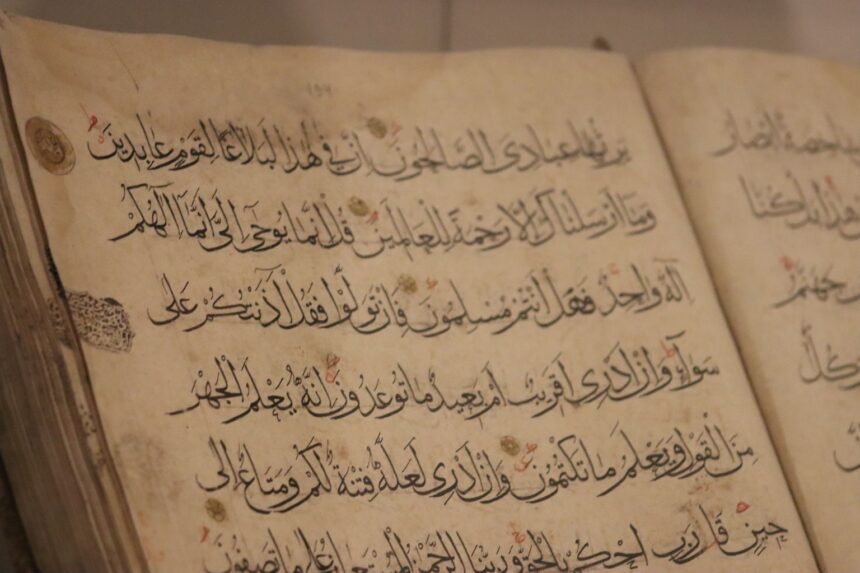 يرثها عبادي الصالحون إن في هذا لبلاغا لقوم عابدين
وما أرسلناك إلا رحمة للعالمين قل إنما يوحى إلي أنما إلهكم
إله واحد فهل أنتم مسلمون فإن تولوا فقل آذنتكم على
سواء وإن أدري أقريب أم بعيد ما توعدون إنه يعلم الجهر
من القول ويعلم ما تكتمون وإن أدري لعله فتنة لكم ومتاع إلى
حين قال رب احكم بالحق وربنا الرحمن المستعان على ما تصفون
شاخصة أبصار
هذا بل كنا
جهنم
وكل